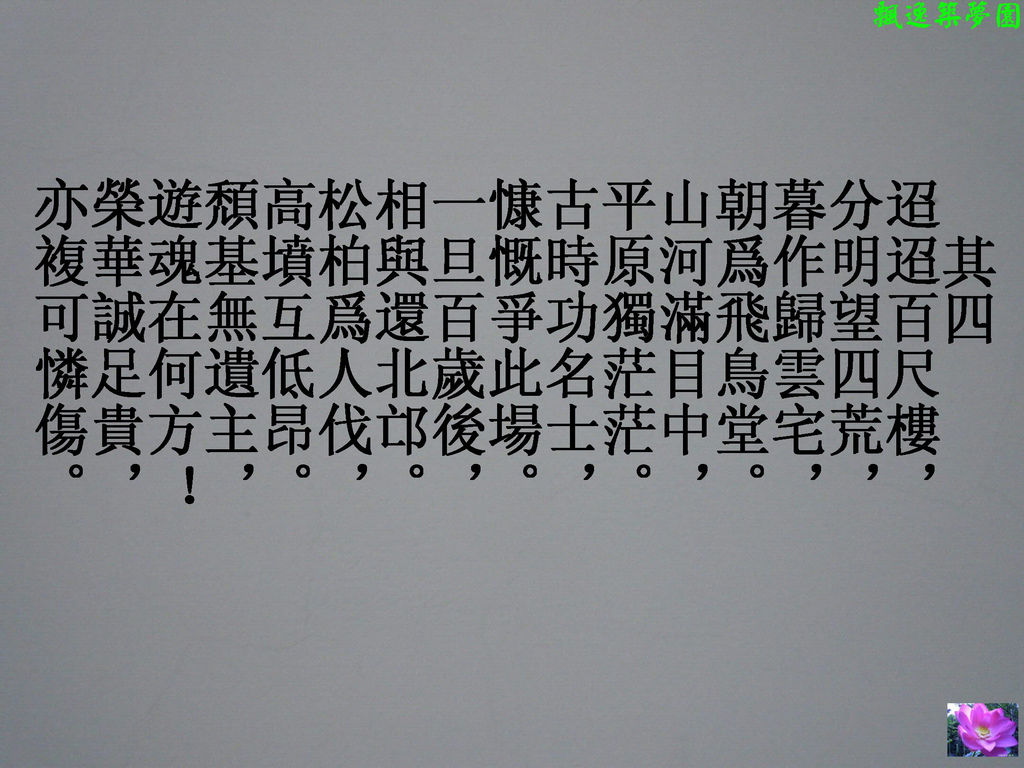 飄逸築夢園
其四
迢迢百尺樓，
分明望四荒，
暮作歸雲宅，
朝爲飛鳥堂。
山河滿目中，
平原獨茫茫。
古時功名士，
慷慨爭此場。
一旦百歲後，
相與還北邙。
松柏爲人伐，
高墳互低昂。
頹基無遺主，
遊魂在何方！
榮華誠足貴，
亦複可憐傷。